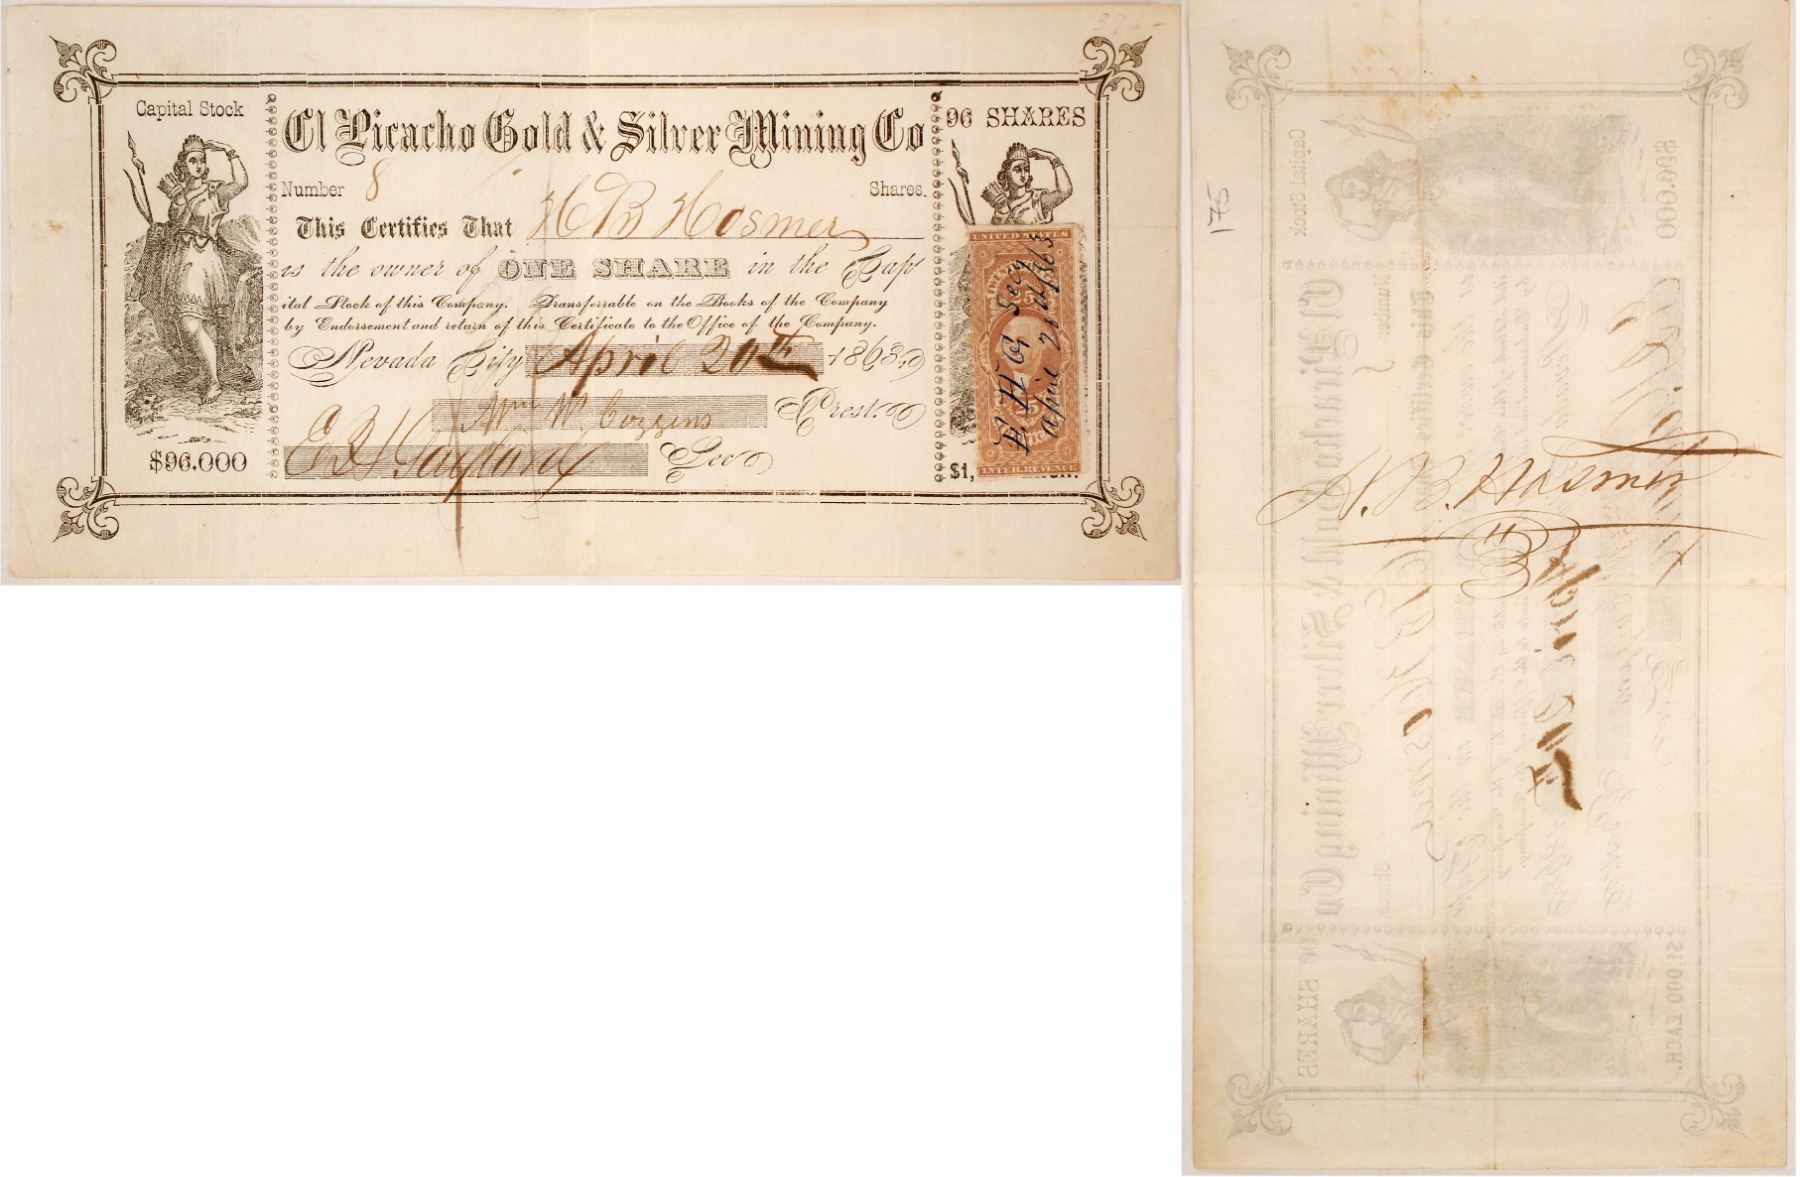 375-
Capital Stock
El Picacho Gold & Silver Mining Co
96 SHARES
Number 8 Shares.
This Certifies That H B Hosmer
is the owner of ONE SHARE in the Cap
ital Stock of this Company. Transferrable on the Books of the Company
by Endorsement and return of this Certificate to the Office of the Company.
Nevada City April 20th 1863
Wm W Cozzins Prest.
Sec
$96.000
$1,
UNITED STATES
Secy
April 20th/1863
INTER. REVENUE
175
H. B. Hosmer